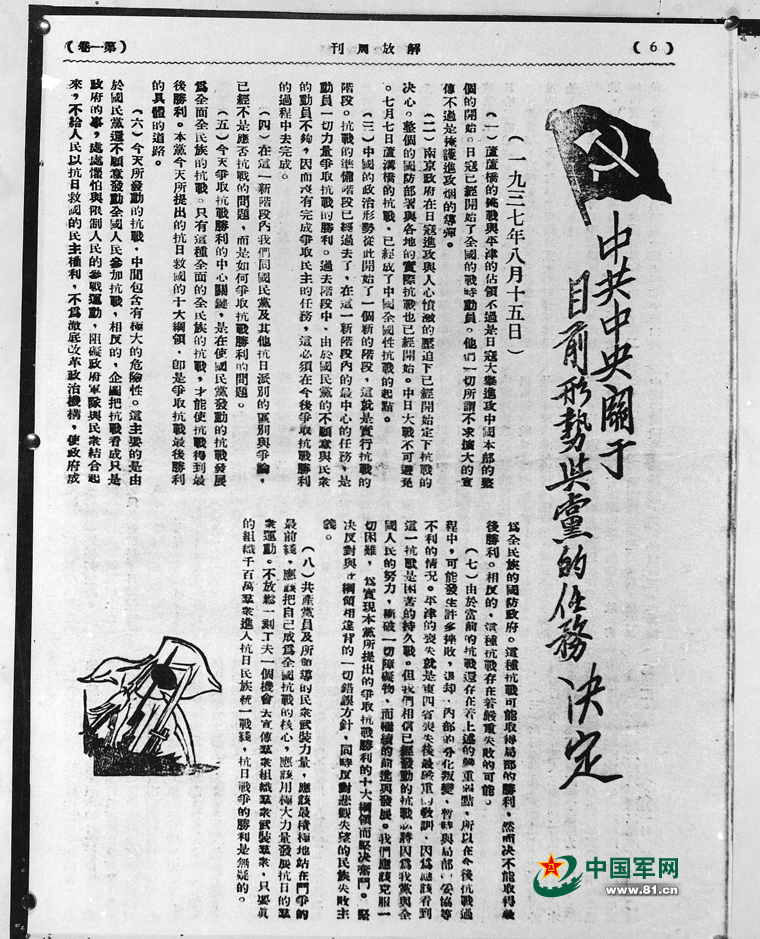 （6）
解放周刊
（第一卷）
中共中央關于
目前形勢與黨的任務 決定
（一九三七年八月十五日）
（一）蘆溝橋的挑戰與平津的佔領不過是日寇大舉進攻中國本部的整
個的開始。日寇已經開始了全國的戰時動員。他們一切所謂不求擴大的宣
傳不過是掩護進攻烟的導彈。
（二）南京政府在日寇進攻與人心憤激的壓迫下已經開始定下抗戰的
決心。整個的國防部署與各地的實際抗戰也已經開始。中日大戰不可避免
。七月七日蘆溝橋的抗戰，已經成了中國全國性抗戰的起點。
（三）中國的政治形勢從此開始了一個新的階段，這就是實行抗戰的
階段。抗戰的準備階段已經過去了，在這一新階段內的最中心的任務，是
動員一切力量爭取抗戰的勝利。過去階段中，由於國民黨的不願意與民衆
的動員不夠，因而沒有完成爭取民主的任務，這必須在今後爭取抗戰勝利
的過程中去完成。
（四）在這一新階段內我們同國民黨及其他抗日派別的區別與爭論，
已經不是應否抗戰的問題，而是如何爭取抗戰勝利的問題。
（五）今天爭取抗戰勝利的中心關鍵，是在使國民黨發動的抗戰發展
爲全面全民族的抗戰。只有這種全面的全民族的抗戰，才能使抗戰得到最
後勝利。本黨今天所提出的抗日救國的十大綱領，卽是爭取抗戰最後勝利
的具體的道路。
（六）今天所發動的抗戰，中間包含有極大的危險性。這主要的是由
於國民黨還不願意發動全國人民參加抗戰，相反的，企圖把抗戰看成只是
政府的事，處處懼怕與限制人民的參戰運動，阻礙政府軍隊與民衆結合起
來，不給人民以抗日救國的民主權利，不爲澈底改革政治機構，使政府成
爲全民族的國防政府。這種抗戰可能取得局部的勝利，然而決不能取得最
後勝利。相反的，這種抗戰存在着嚴重失敗的可能。
（七）由於當前的抗戰還存在着上述的嚴重弱點，所以在今後抗戰過
程中，可能發生許多挫敗，退却，內部的分化叛變，暫時與局部的妥協等
不利的情況。平津的喪失就是東四省喪失後最嚴重的敎訓。因爲應該看到
這一抗戰是困苦的持久戰。但我們相信已經發動的抗戰必將因爲我黨與全
國人民的努力，衝破一切障礙物，而繼續的前進與發展。我們應該克服一
切困難，爲實現本黨所提出的爭取抗戰勝利的十大綱領而堅決奮鬥。堅
決反對與綱領相違背的一切錯誤方針，同時反對悲觀失望的民族失敗主
義。
（八）共產黨員及所領導的民衆武裝力量，應該最積極地站在鬥爭的
最前綫，應該把自己成爲全國抗戰的核心，應該用極大力量發展抗日的羣
衆運動。不放鬆一刻工夫一個機會去宣傳羣衆組織羣衆武裝羣衆，只要真
的組織千百萬羣衆進入抗日民族統一戰綫，抗日戰爭的勝利是無疑的。
中国军网
www.81.cn